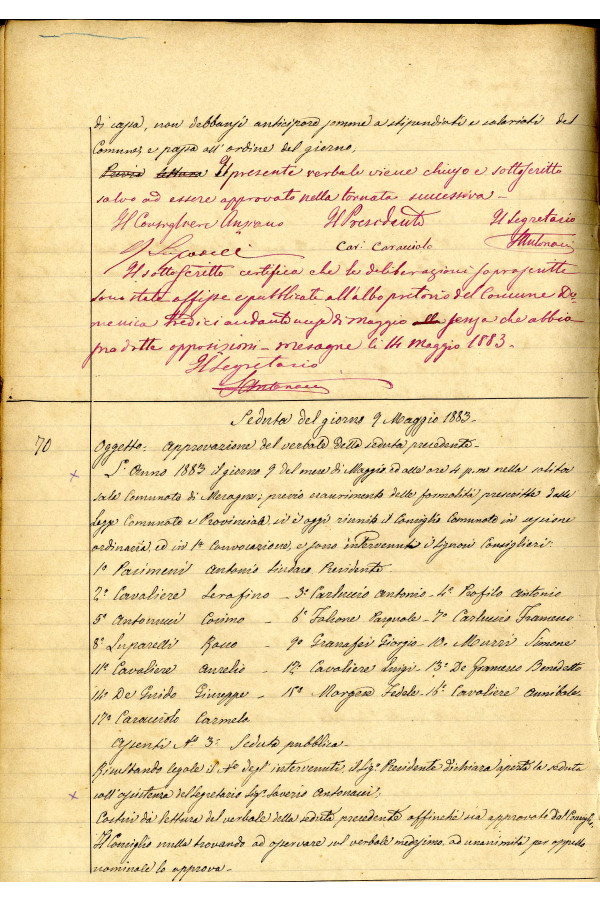 di cassa, non debbansi anticipare somme a stipendiati e salariati del
Comune, e passa all'ordine del giorno.
Previa lettura Il presente verbale viene chiuso e sottoscritto
salvo ad essere approvato nella tornata successiva -
Il Consigliere Anziano Il Presidente Il Segretario
Car: Caracciolo SAntonacci
Il sottoscritto certifica che le deliberazioni soprascritte
sono state affisse e pubblicate all'albo pretorio del Comune Do
menica tredici andante mese di Maggio senza che abbia
prodotte opposizioni - Mesagne li 14 Maggio 1883 -
Il Segretario
SAntonacci
Seduta del giorno 9 Maggio 1883 -
70 Oggetto - Approvazione del verbale della seduta precedente -
L'Anno 1883 il giorno 9 del mese di Maggio ed alle ore 4 p.m. nella solita
sale Comunale di Mesagne; previo esaurimento delle formalità prescritte dalla
Legge Comunale e Provinciale, si è oggi riunito il Consiglio Comunale in sessione
ordinaria, ed in 1ª Convocazione, e sono intervenuti i Signori Consiglieri:
1º Pacimeni Antonio Sindaco Presidente
2º Cavaliere Serafino - 3º Carluccio Antonio - 4º Profilo Antonio
5º Antonucci Cosimo - 6º Falcone Pasquale - 7º Carluccio Francesco
8º Luparelli Rocco - 9º Granafei Giorgio - 10º Murri Simone
11º Cavaliere Aurelio - 12º Cavaliere Luigi - 13º De Francesco Benedetto
14º De Guido Giuseppe - 15º Morgese Fedele - 16º Cavaliere Annibale -
17º Caracciolo Carmelo
Assenti Nº 3: Seduta pubblica -
Risultando legale il Nº degl'intervenuti, il Sigr Presidente dichiara aperta la seduta
coll'assistenza del Segretario Sigr Saverio Antonacci;
Costui dà lettura del verbale della seduta precedente affinché sia approvato dal Consiglio.
Il Consiglio nulla trovando ad osservare sul verbale medesimo, ad unanimità per appello
nominale lo approva -